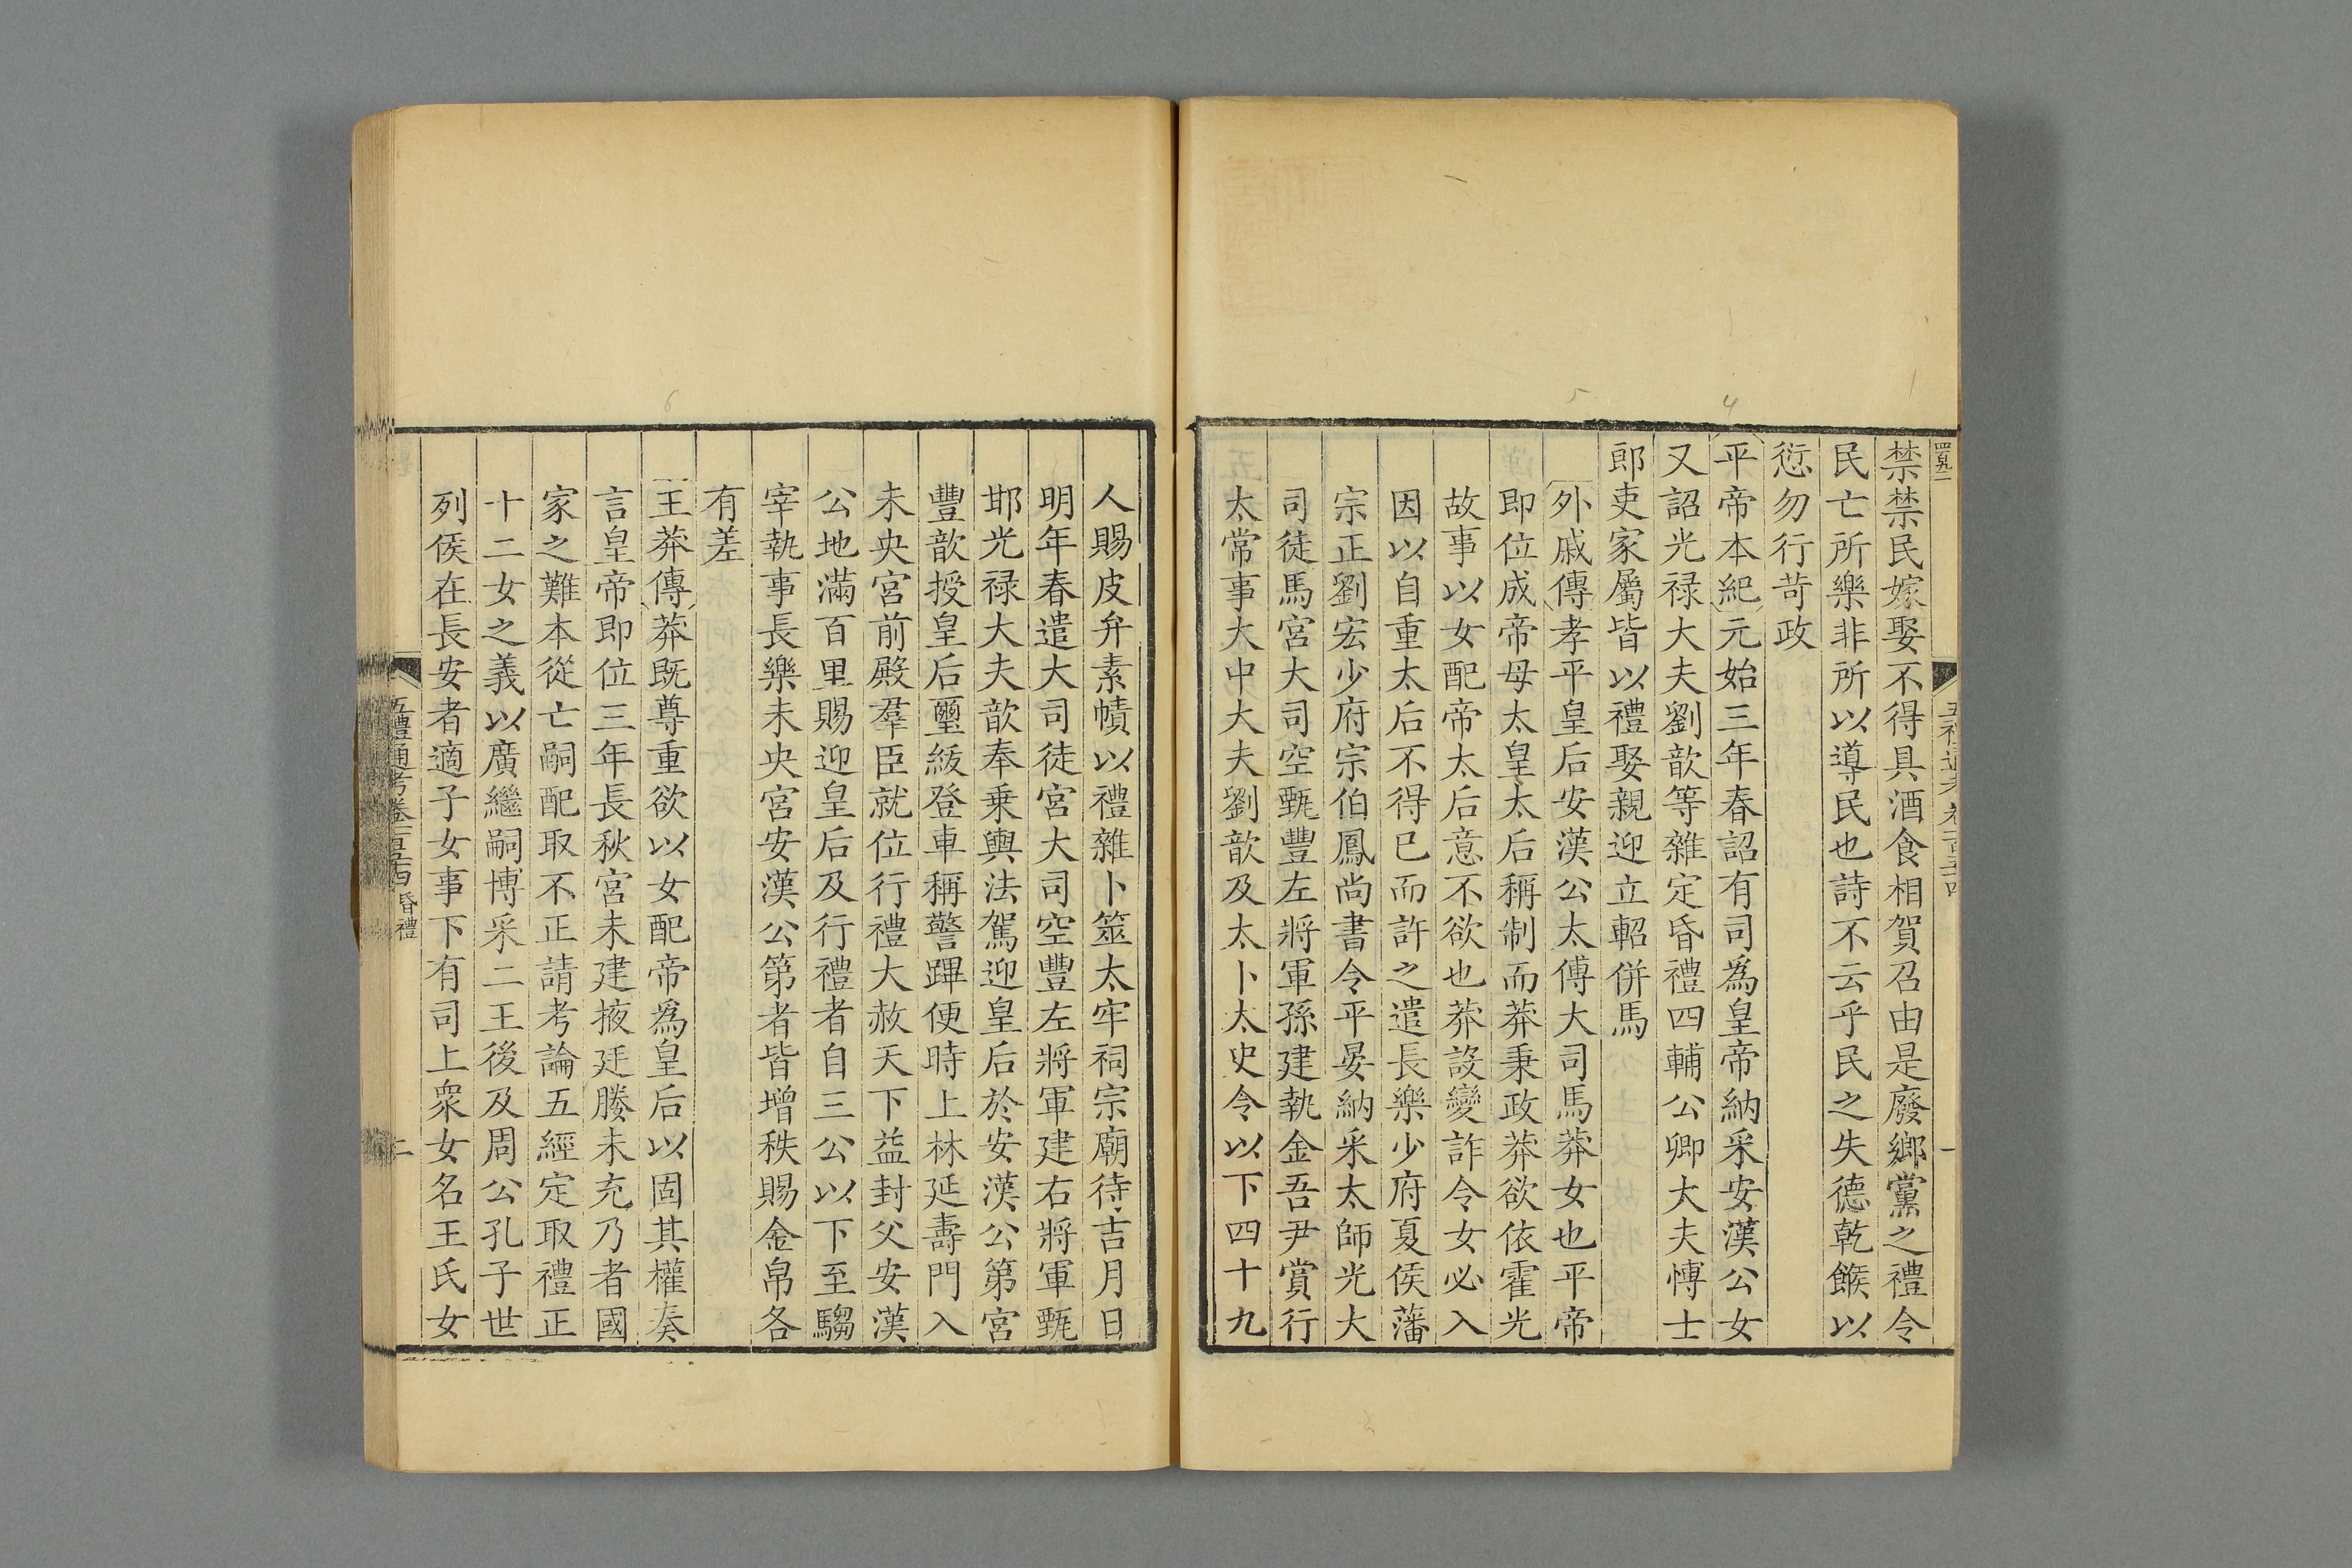 禁禁民嫁娶不得具酒食相賀召由是廢鄉黨之禮令
民亡所樂非所以導民也詩不云乎民之失德乾餱以
愆勿行苛政
平帝本紀元始三年春詔有司爲皇帝納采安漢公女
又詔光祿大夫劉歆等雜定昏禮四輔公卿大夫博士
郎吏家屬皆以禮娶親迎立軺併馬
外戚傳孝平皇后安漢公太傅大司馬莽女也平帝
即位成帝母太皇太后稱制而莽秉政莽欲依霍光
故事以女配帝太后意不欲也莽設變詐令女必入
因以自重太后不得已而許之遣長樂少府夏侯藩
宗正劉宏少府宗伯鳳尚書令平晏納采太師光大
司徒馬宮大司空甄豐左將軍孫建執金吾尹賞行
太常事大中大夫劉歆及太卜太史令以下四十九
人賜皮弁素幘以禮雜卜筮太牢祠宗廟待吉月日
明年春遣大司徒宮大司空豐左將軍建右將軍甄
邯光祿大夫歆奉乘輿法駕迎皇后於安漢公第宮
豐歆授皇后璽紱登車稱警蹕便時上林延壽門入
未央宮前殿羣臣就位行禮大赦天下益封父安漢
公地滿百里賜迎皇后及行禮者自三公以下至騶
宰執事長樂未央宮安漢公第者皆增秩賜金帛各
有差
王莽傳莽既尊重欲以女配帝爲皇后以固其權奏
言皇帝即位三年長秋宮未建掖廷媵未充乃者國
家之難本從亡嗣配取不正請考論五經定取禮正
十二女之義以廣繼嗣博采二王後及周公孔子世
列侯在長安者適子女事下有司上衆女名王氏女
五禮通考卷一百五十四 昏禮
二